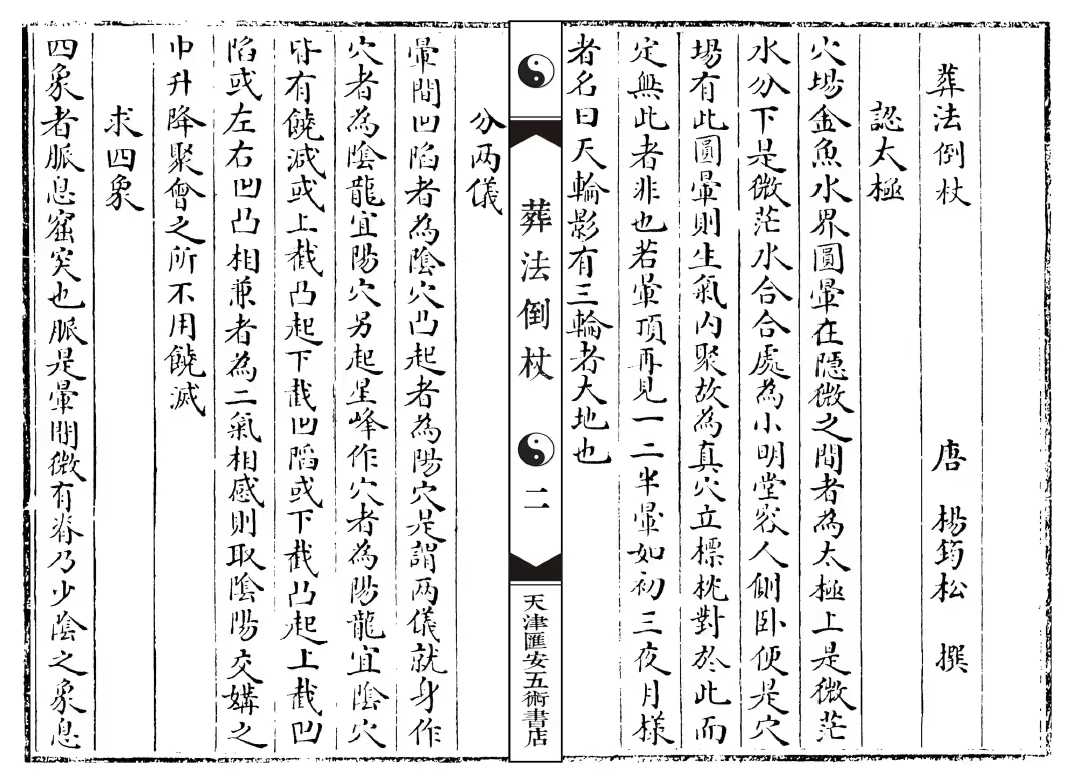 葬法倒杖
唐 楊筠松 撰
認太極
穴場金魚水界圓暈在隱微之間者為太極上是微茫
水分下是微茫水合合處為小明堂容人側卧便是穴
場有此圓暈則生氣内聚故為真穴立標枕對於此而
定無此者非也若暈頂再見一二半暈如初三夜月樣
者名曰天輪影有三輪者大地也
葬法倒杖
二
天津匯安五術書店
分兩儀
暈間凹陷者為陰穴凸起者為陽穴是謂兩儀就身作
穴者為陰龍宜陽穴另起星峰作穴者為陽龍宜陰穴
皆有饒減或上截凸起下截凹陷或下截凸起上截凹
陷或左右凹凸相兼者為二氣相感則取陰陽交媾之
中升降聚會之所不用饒減
求四象
四象者脈息窟突也脈是暈間微有脊乃少陰之象息